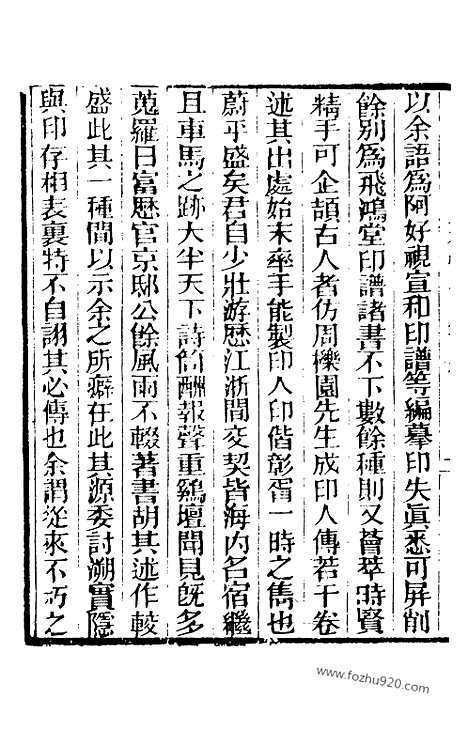 以余語爲阿好視宣和印譜等編摹印失眞悉可屏削
餘別爲飛鴻堂印譜諸書不下數餘種則又薈萃時賢
精手可企頡古人者仿周櫟園先生成印人傳若干卷
述其出處始末率手能製印人印偕彰胥一時之雋也
蔚乎盛矣君自少壯游歷江浙間交契皆海内名宿繼
且車馬之跡大半天下詩筒酬報聲重鷄壇聞見旣多
蒐羅日富歷官京邸公餘風雨不輟著書胡其述作較
盛此其一種間以示余之所癖在此其源委討溯實隱
與印存相表裏特不自詡其必傳也余謂從來不朽之
www.fozhu920.com